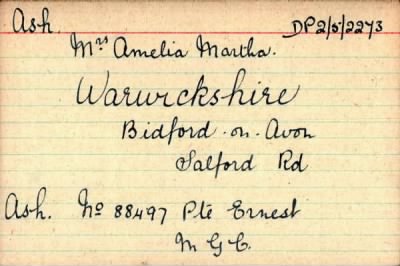 Ash. DP2/5/2273
Mrs Amelia Martha.
Warwickshire
Bidford-on-Avon
Salford Rd
Ash. No 88497 Pte Ernest
M G C.